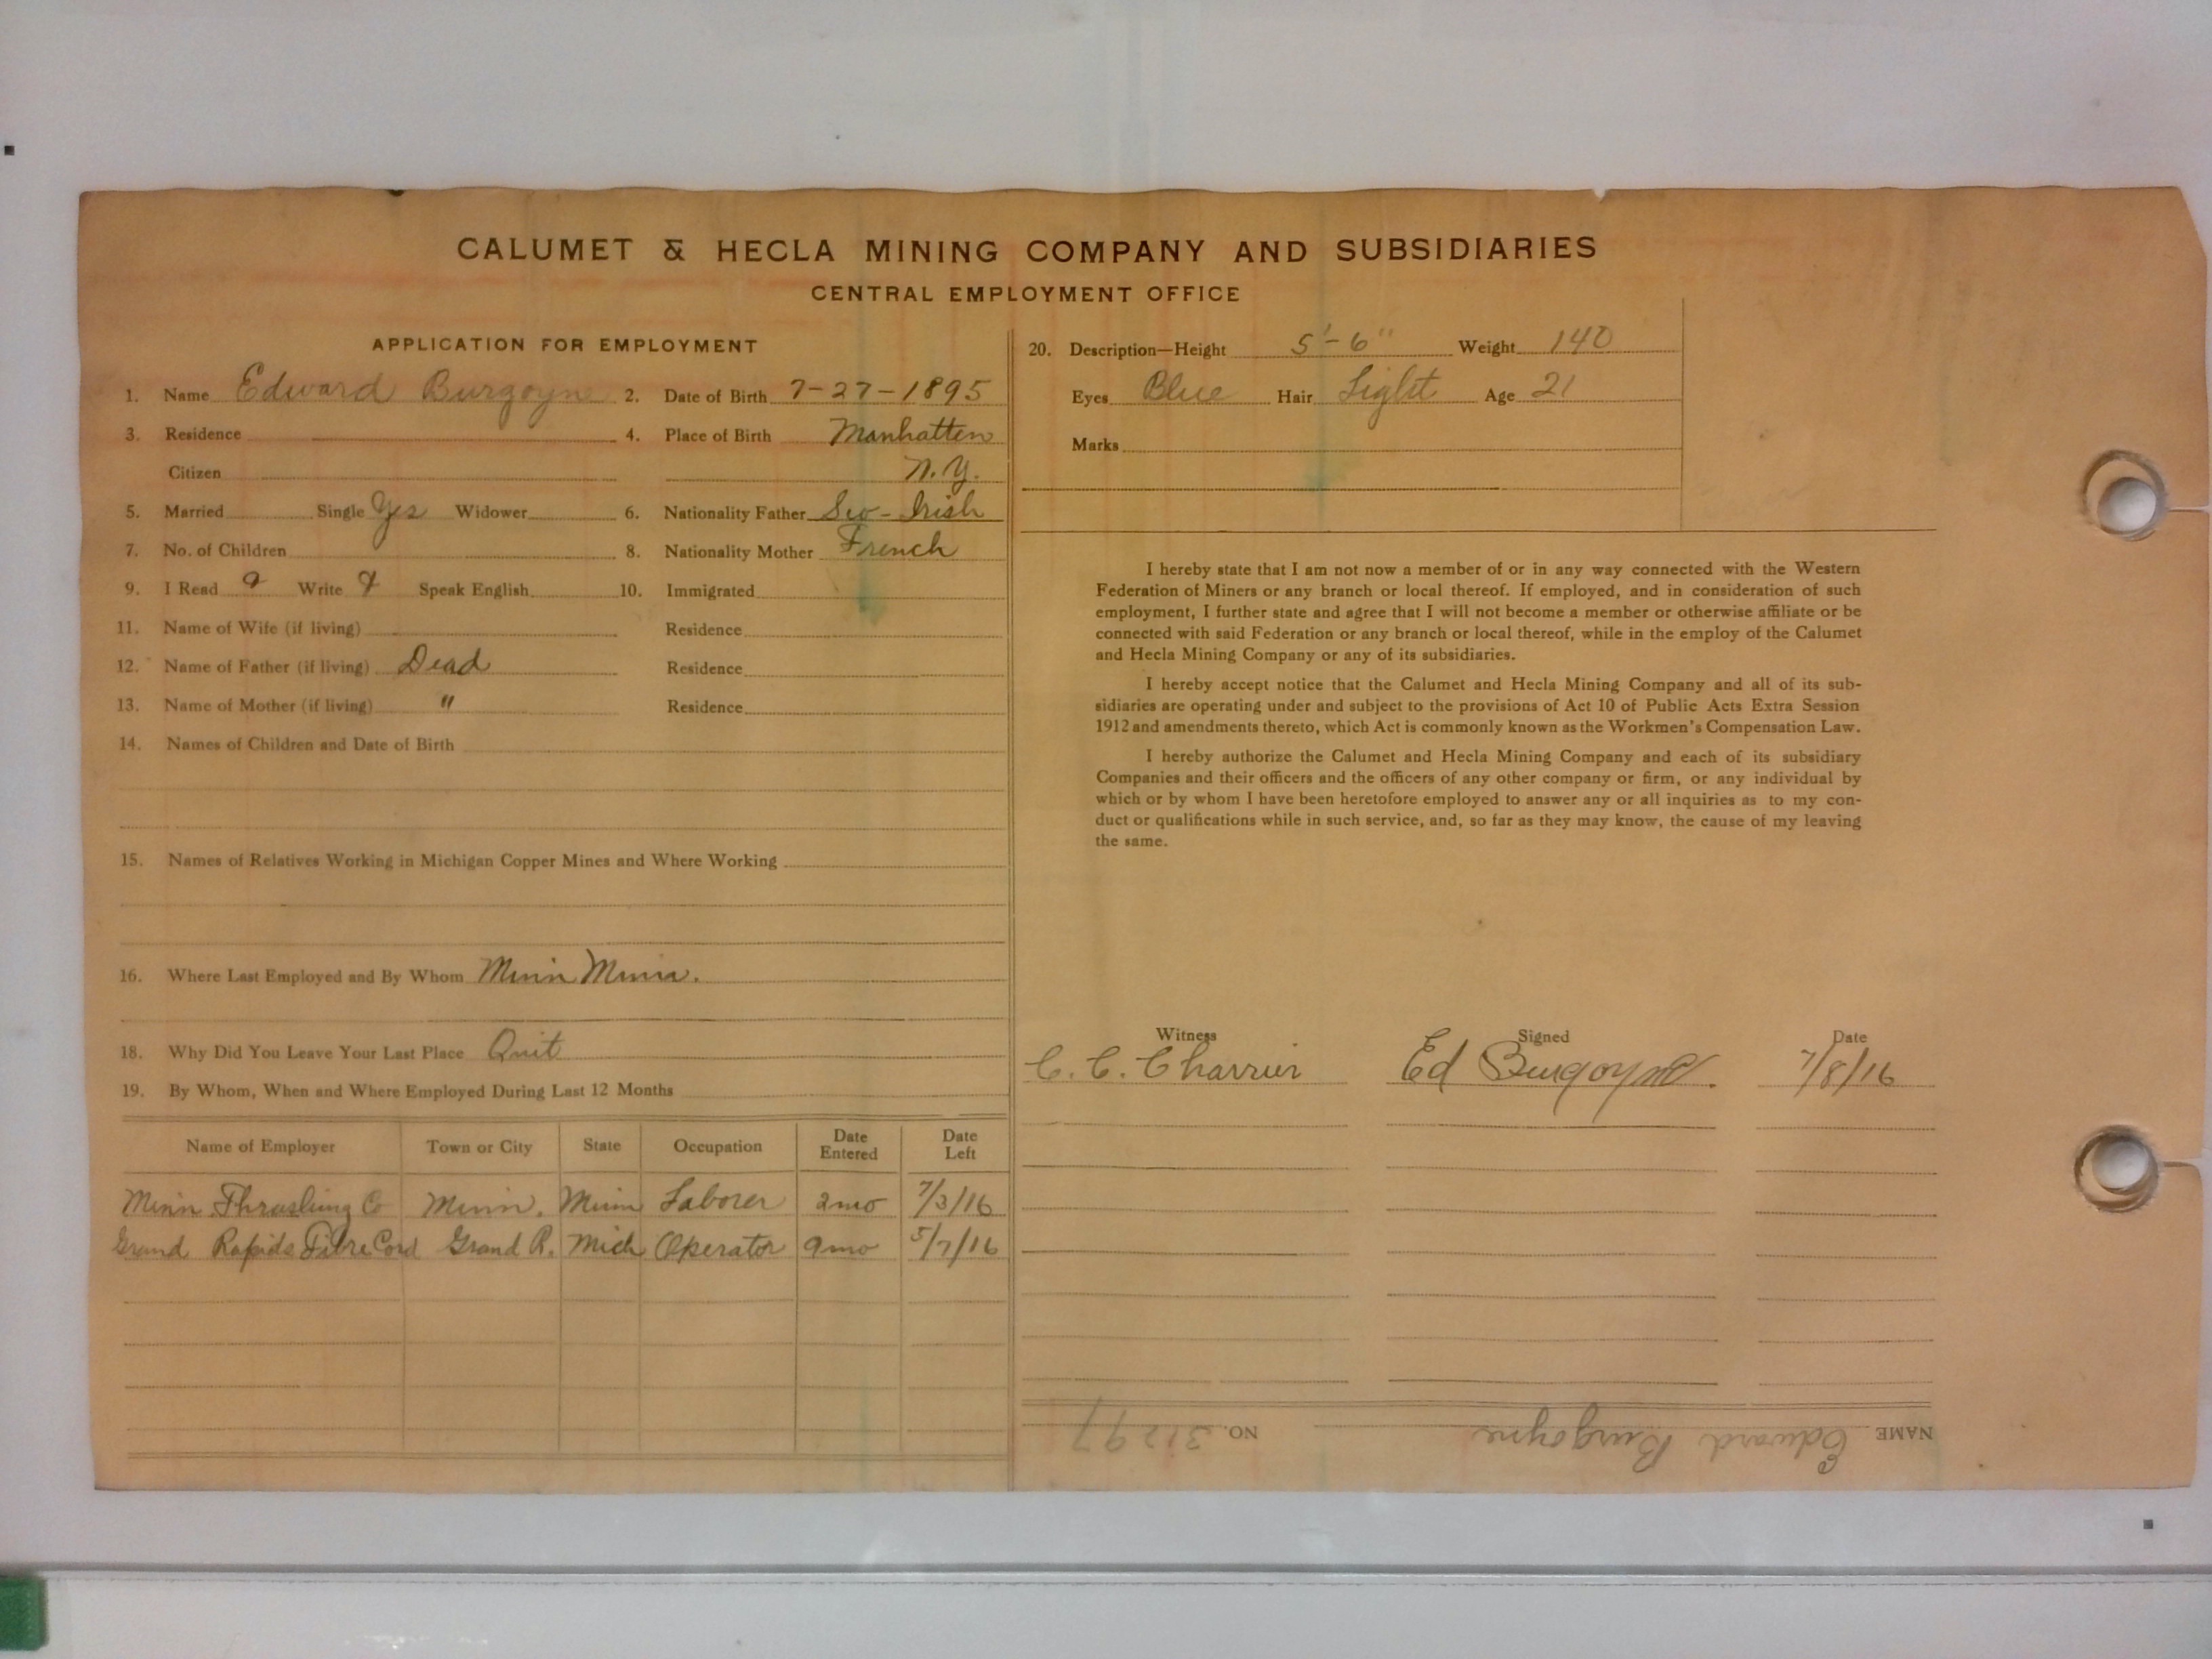 CALUMET & HECLA MINING COMPANY AND SUBSIDIARIES
CENTRAL EMPLOYMENT OFFICE
APPLICATION FOR EMPLOYMENT
1. Name Edward Burgoyn 2. Date of Birth 7-27-1895
3. Residence 4. Place of Birth Manhatten
Citizen N.Y.
5. Married Single Yes Widower 6. Nationality Father Irish
7. No. of Children 8. Nationality Mother French
9. I Read Write Speak English 10. Immigrated
11. Name of Wife (if living) Residence
12. Name of Father (if living) Dead Residence
13. Name of Mother (if living) " Residence
14. Names of Children and Date of Birth
15. Names of Relatives Working in Michigan Copper Mines and Where Working
16. Where Last Employed and By Whom Minn Minn.
18. Why Did You Leave Your Last Place Quit
19. By Whom, When and Where Employed During Last 12 Months
Name of Employer Town or City State Occupation Date Entered Date Left
Minn Thrashing Co Minn. Minn Laborer 2mo 7/3/16
Grand Rapids Fibre Cord Grand R. Mich Operator 9mo 5/7/16
20. Description—Height 5'-6" Weight 140
Eyes Blue Hair Light Age 21
Marks
I hereby state that I am not now a member of or in any way connected with the Western
Federation of Miners or any branch or local thereof. If employed, and in consideration of such
employment, I further state and agree that I will not become a member or otherwise affiliate or be
connected with said Federation or any branch or local thereof, while in the employ of the Calumet
and Hecla Mining Company or any of its subsidiaries.
I hereby accept notice that the Calumet and Hecla Mining Company and all of its sub-
sidiaries are operating under and subject to the provisions of Act 10 of Public Acts Extra Session
1912 and amendments thereto, which Act is commonly known as the Workmen's Compensation Law.
I hereby authorize the Calumet and Hecla Mining Company and each of its subsidiary
Companies and their officers and the officers of any other company or firm, or any individual by
which or by whom I have been heretofore employed to answer any or all inquiries as to my con-
duct or qualifications while in such service, and, so far as they may know, the cause of my leaving
the same.
Witness Signed Date
C. C. Charrier Ed Burgoyne. 7/8/16
NAME Edward Burgoyne NO. 31297